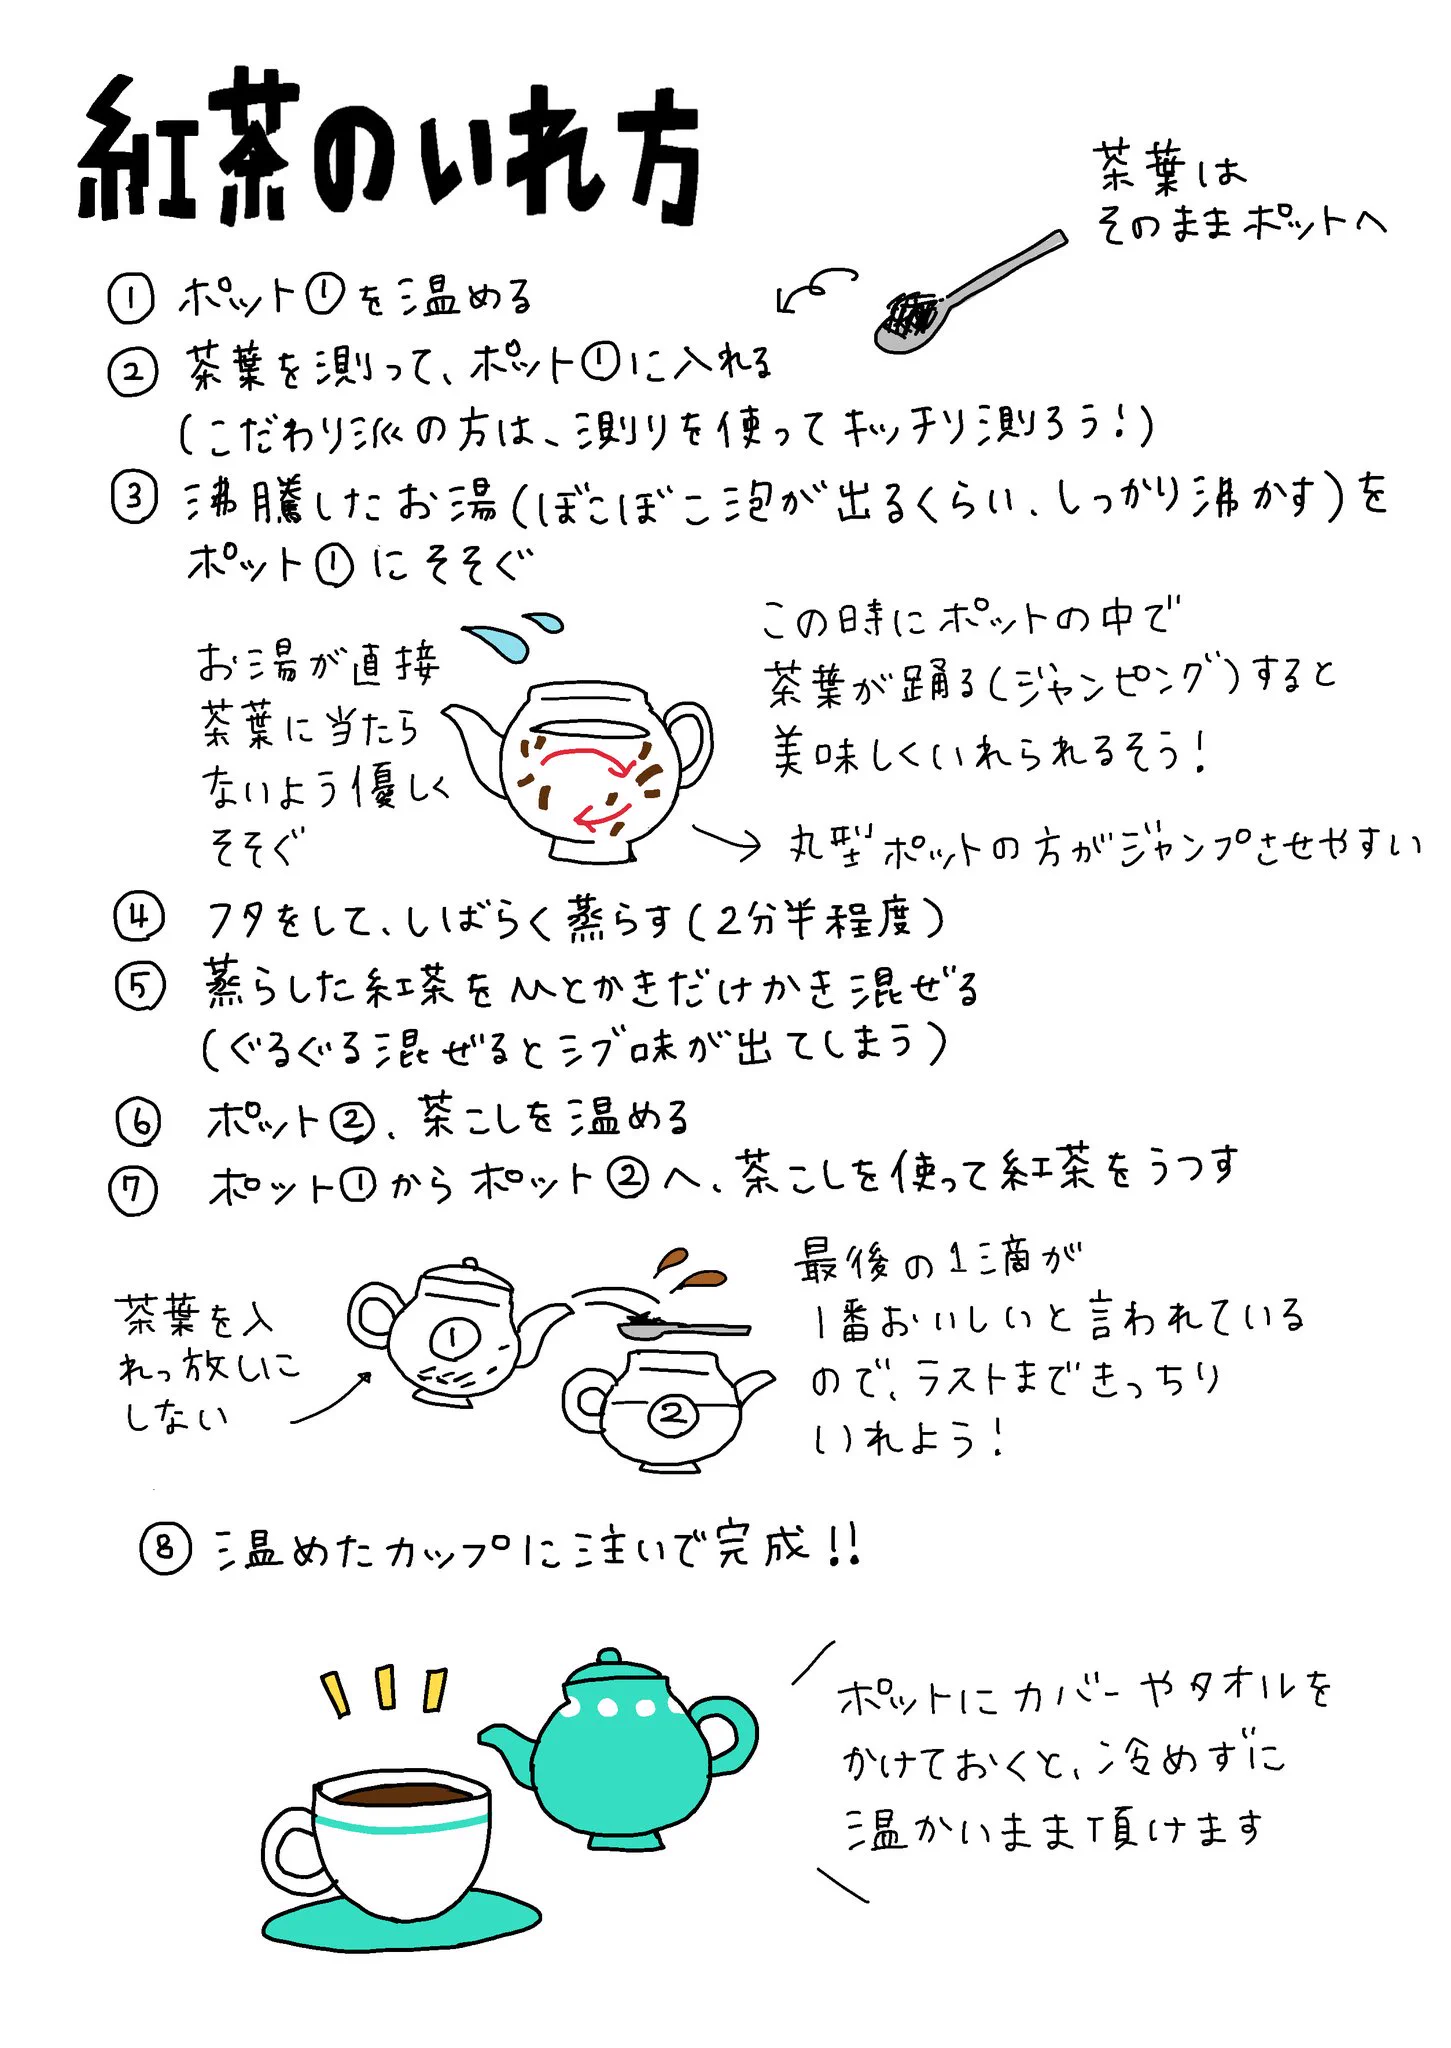 紅茶のいれ方
茶葉は
そのままポットへ
① ポット①を温める
② 茶葉を測って、ポット①に入れる
(こだわり派の方は、測りを使ってキッチリ測ろう!)
③ 沸騰したお湯(ぼこぼこ泡が出るくらい、しっかり沸かす)を
ポット①にそそぐ
お湯が直接
茶葉に当たら
ないよう優しく
そそぐ
この時にポットの中で
茶葉が踊る(ジャンピング)すると
美味しくいれられるそう!
丸型ポットの方がジャンプさせやすい
④ フタをして、しばらく蒸らす(2分半程度)
⑤ 蒸らした紅茶をひとかきだけかき混ぜる
(ぐるぐる混ぜるとシブ味が出てしまう)
⑥ ポット②、茶こしを温める
⑦ ポット①からポット②へ、茶こしを使って紅茶をうつす
茶葉を入
れっ放しに
しない
①
②
最後の1滴が
1番おいしいと言われている
ので、ラストまできっちり
いれよう!
⑧ 温めたカップに注いで完成!!
ポットにカバーやタオルを
かけておくと、冷めずに
温かいまま頂けます